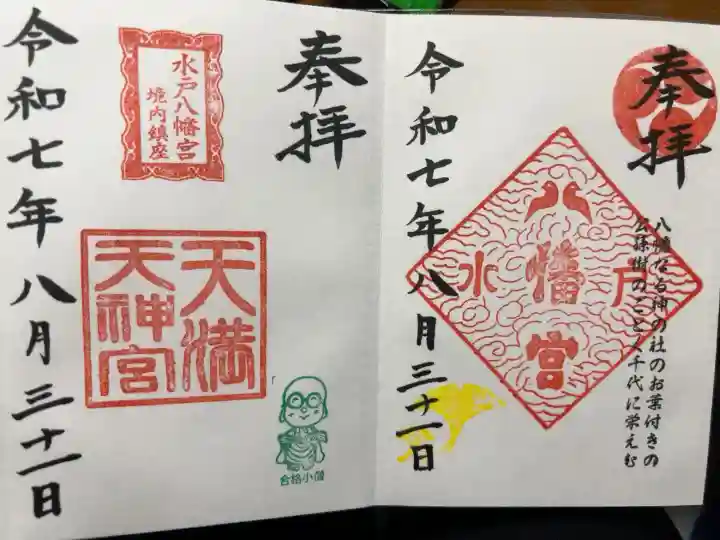 奉拝
八幡なる神の社のお葉付きの
公孫樹のごとく千代に栄えむ
水戸
八幡宮
令和七年八月三十一日
奉拝
水戸八幡宮
境内鎮座
天満
天神宮
合格小僧
令和七年八月三十一日